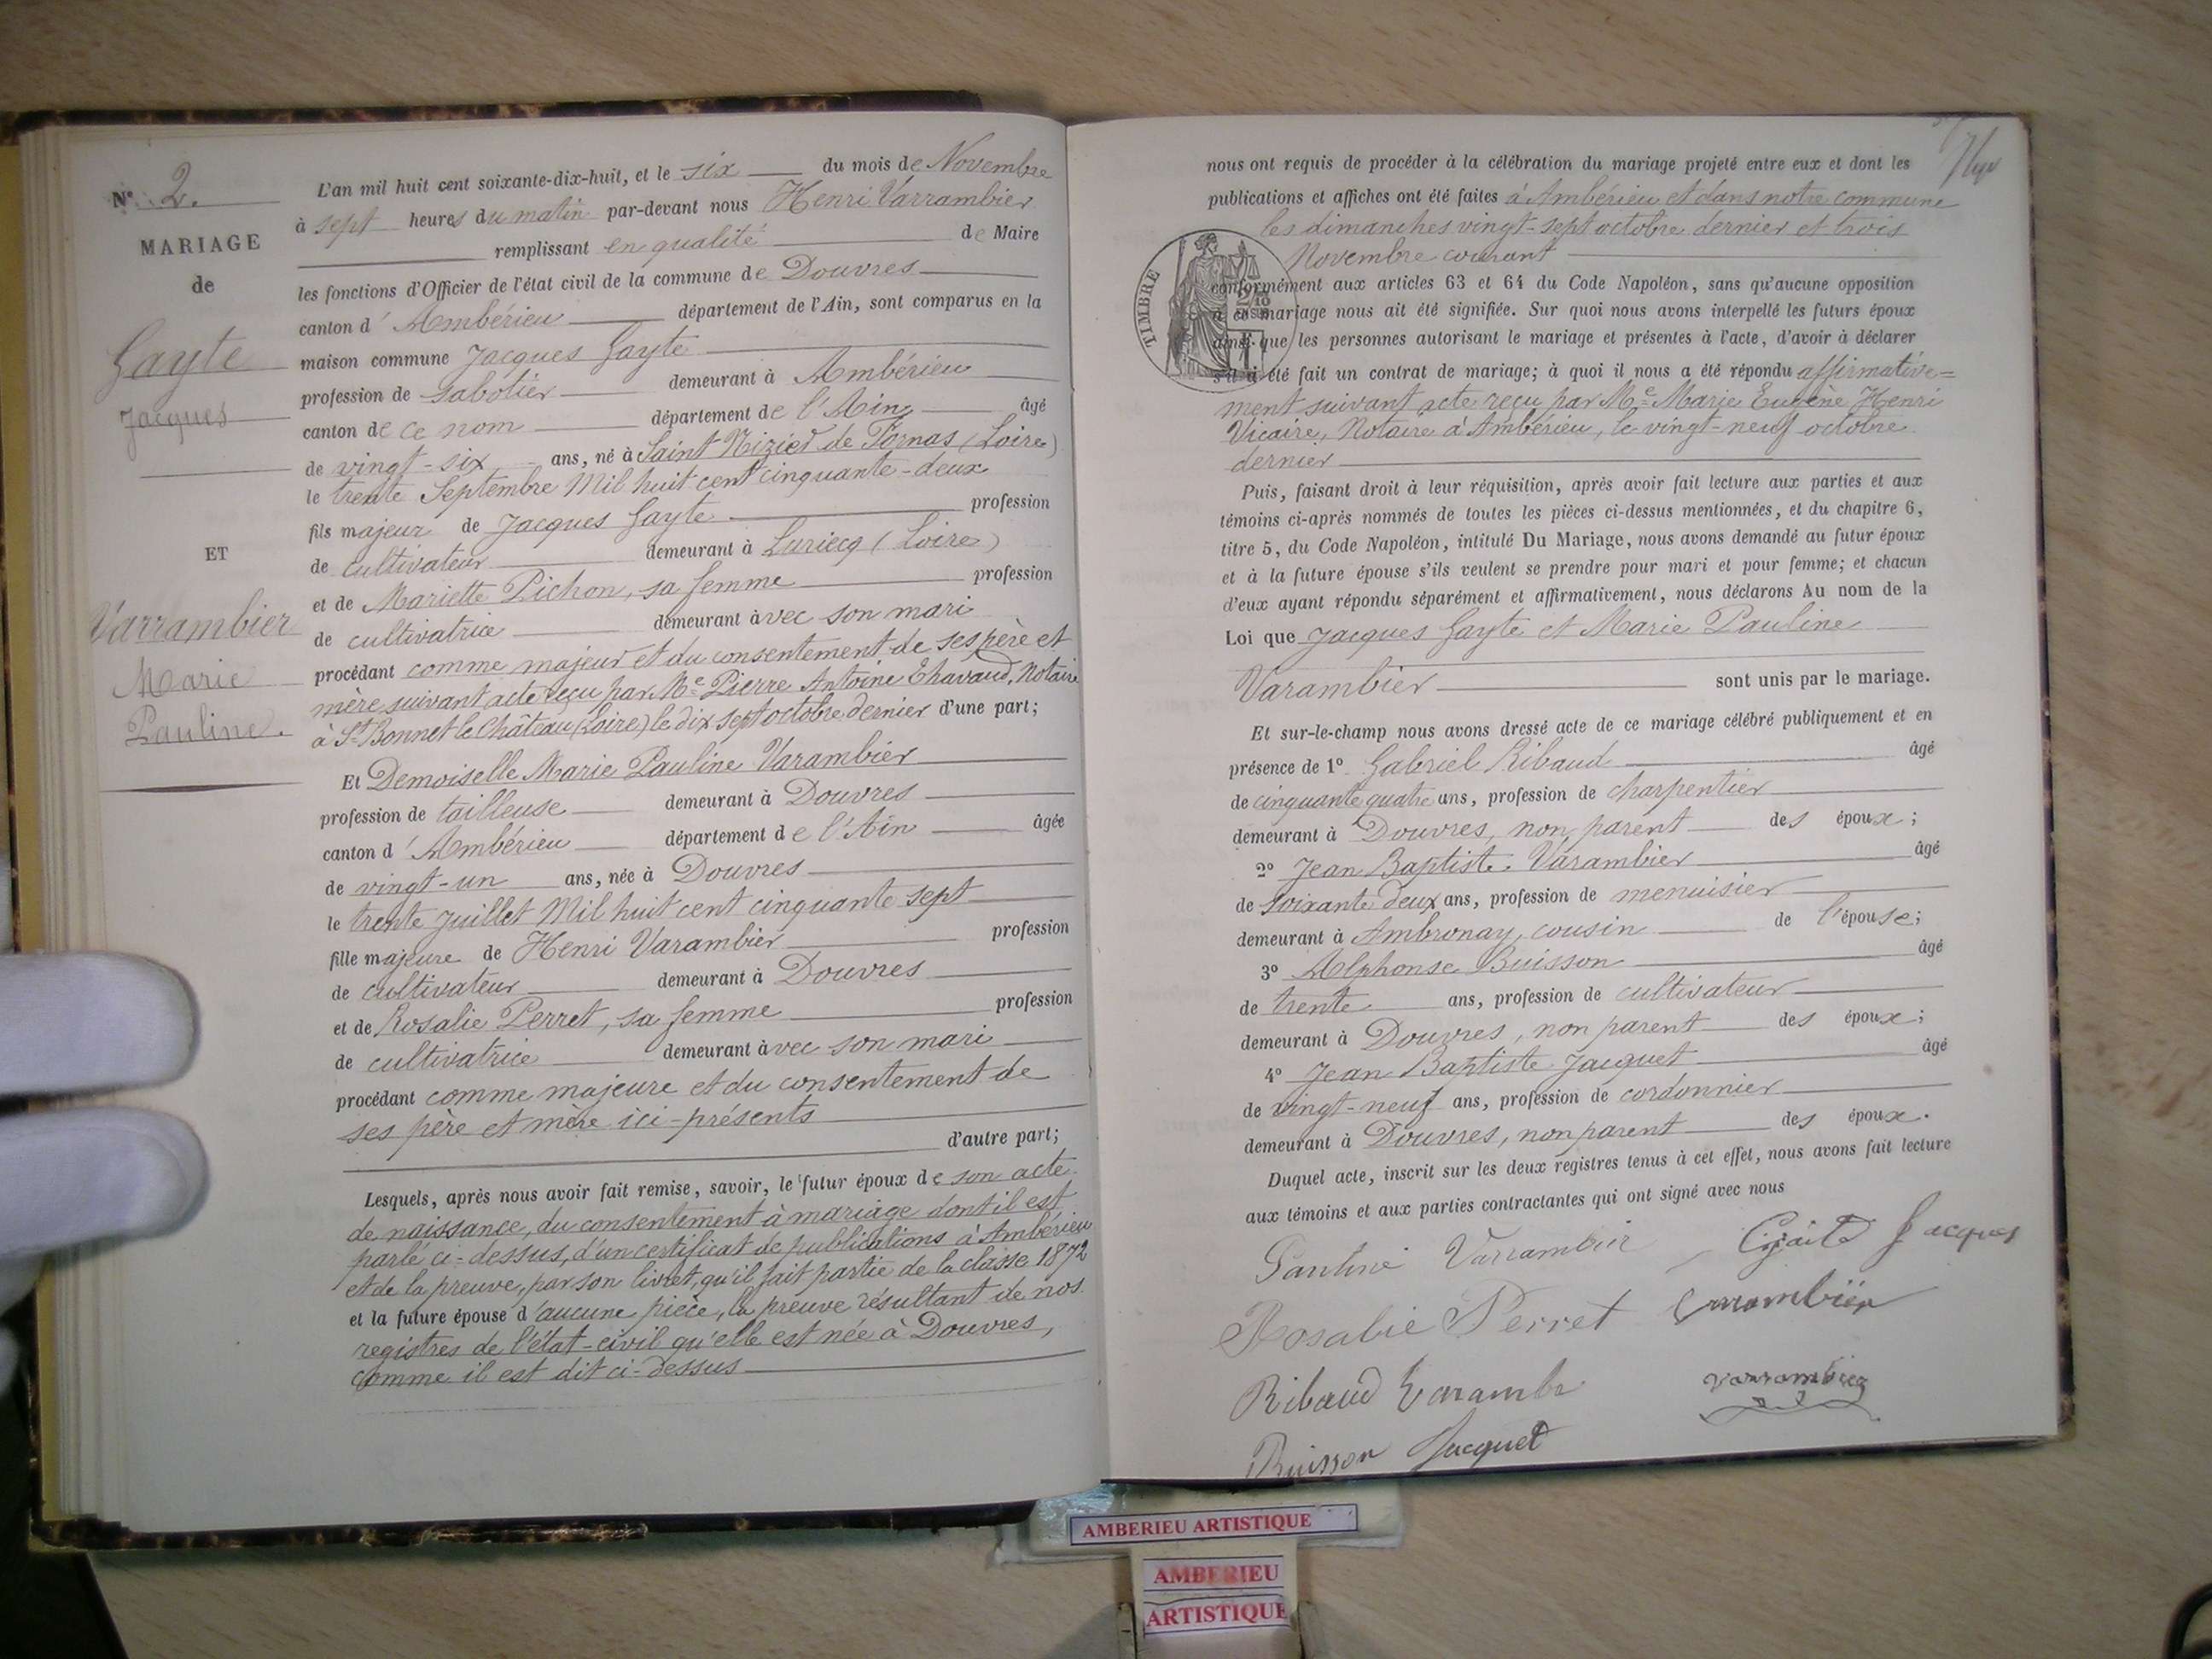 N° 2.
MARIAGE
de
Gayte
Jacques
ET
Varrambier
Marie
Pauline.
L'an mil huit cent soixante-dix-huit, et le six du mois de Novembre
à sept heures du matin par-devant nous Henri Varrambier
remplissant en qualité de Maire
les fonctions d'Officier de l'état civil de la commune de Douvres
canton d'Ambérieu département de l'Ain, sont comparus en la
maison commune Jacques Gayte
profession de sabotier demeurant à Ambérieu
canton de ce nom département de l'Ain âgé
de vingt-six ans, né à Saint Nizier de Fornas (Loire)
le trente Septembre Mil huit cent cinquante-deux
fils majeur de Jacques Gayte profession
de cultivateur demeurant à Luriecq (Loire)
et de Mariette Pichon, sa femme profession
de cultivatrice demeurant avec son mari
procédant comme majeur et du consentement de ses père et
mère suivant acte reçu par Me Pierre Antoine Chavaud, Notaire
à St Bonnet le Château (Loire) le dix sept octobre dernier d'une part;
Et Demoiselle Marie Pauline Varambier
profession de tailleuse demeurant à Douvres
canton d'Ambérieu département de l'Ain âgée
de vingt-un ans, née à Douvres
le trente juillet Mil huit cent cinquante sept
fille majeure de Henri Varambier profession
de cultivateur demeurant à Douvres
et de Rosalie Perret, sa femme profession
de cultivatrice demeurant avec son mari
procédant comme majeure et du consentement de
ses père et mère ici-présents
d'autre part;
Lesquels, après nous avoir fait remise, savoir, le futur époux de son acte
de naissance, du consentement à mariage dont il est
parlé ci-dessus, d'un certificat de publications à Ambérieu
et de la preuve, par son livret, qu'il fait partie de la classe 1872
et la future épouse d'aucune pièce, la preuve résultant de nos
registres de l'état-civil qu'elle est née à Douvres,
comme il est dit ci-dessus
nous ont requis de procéder à la célébration du mariage projeté entre eux et dont les
publications et affiches ont été faites à Ambérieu et dans notre commune
les dimanches vingt-sept octobre dernier et trois
Novembre courant
TIMBRE
conformément aux articles 63 et 64 du Code Napoléon, sans qu'aucune opposition
à ce mariage nous ait été signifiée. Sur quoi nous avons interpellé les futurs époux
ainsi que les personnes autorisant le mariage et présentes à l'acte, d'avoir à déclarer
s'il a été fait un contrat de mariage; à quoi il nous a été répondu affirmative=
ment suivant acte reçu par Me Marie Eugène Henri
Vicaire, Notaire à Ambérieu, le vingt-neuf octobre
dernier
Puis, faisant droit à leur réquisition, après avoir fait lecture aux parties et aux
témoins ci-après nommés de toutes les pièces ci-dessus mentionnées, et du chapitre 6,
titre 5, du Code Napoléon, intitulé Du Mariage, nous avons demandé au futur époux
et à la future épouse s'ils veulent se prendre pour mari et pour femme; et chacun
d'eux ayant répondu séparément et affirmativement, nous déclarons Au nom de la
Loi que Jacques Gayte et Marie Pauline
Varambier sont unis par le mariage.
Et sur-le-champ nous avons dressé acte de ce mariage célébré publiquement et en
présence de 1° Gabriel Ribaud âgé
de cinquante quatre ans, profession de charpentier
demeurant à Douvres, non parent des époux;
2° Jean Baptiste Varambier âgé
de soixante deux ans, profession de menuisier
demeurant à Ambronay, cousin de l'épouse;
3° Alphonse Buisson âgé
de trente ans, profession de cultivateur
demeurant à Douvres, non parent des époux;
4° Jean Baptiste Jacquet âgé
de vingt-neuf ans, profession de cordonnier
demeurant à Douvres, non parent des époux.
Duquel acte, inscrit sur les deux registres tenus à cet effet, nous avons fait lecture
aux témoins et aux parties contractantes qui ont signé avec nous
Pauline Varrambier Jacques
Rosalie Perret Varambier
Ribaud Varrambier
Buisson Jacquet
AMBERIEU ARTISTIQUE
AMBERIEU
ARTISTIQUE